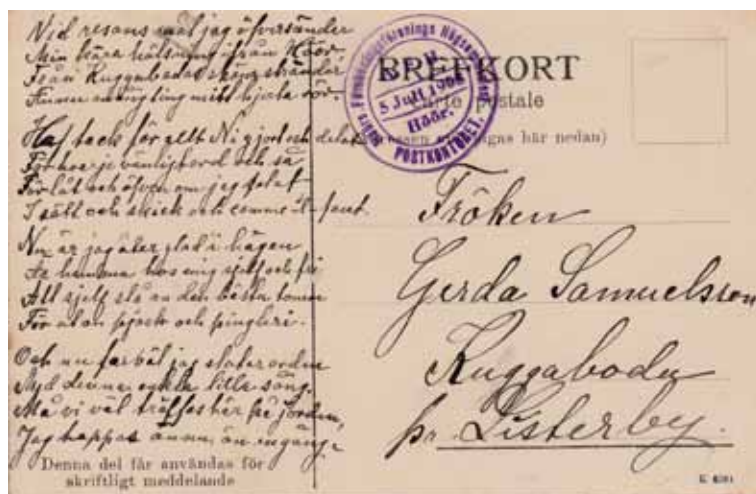 Vid resans mål jag öfversänder
Min kära hälsning ifrån Höör
Från Kuggebodas sköna stränder
Ännu mitt hjerta rör.
Haf tack för allt Ni gjort och delat
För hvarje vänligt ord och så
Förlåt och äfven om jag felat
I sätt och skick och comme il faut.
Nu är jag åter glad i hågen
Är hemma hos mig sjelf och fri
Att sjelf slå an den bästa
För utan pjosck och pingleri.
Och nu farväl jag slutar orden
Med denna enkla lilla sång.
Må vi väl träffas här på jorden,
Jag hoppas ännu än engång.
Denna del får användas för
skriftligt meddelande
BREFKORT
Carte postale
här nedan)
5 Juli
Höör.
POSTKONTORET.
Fröken
Gerda Samuelsson
Kuggeboda
pr. Listerby.